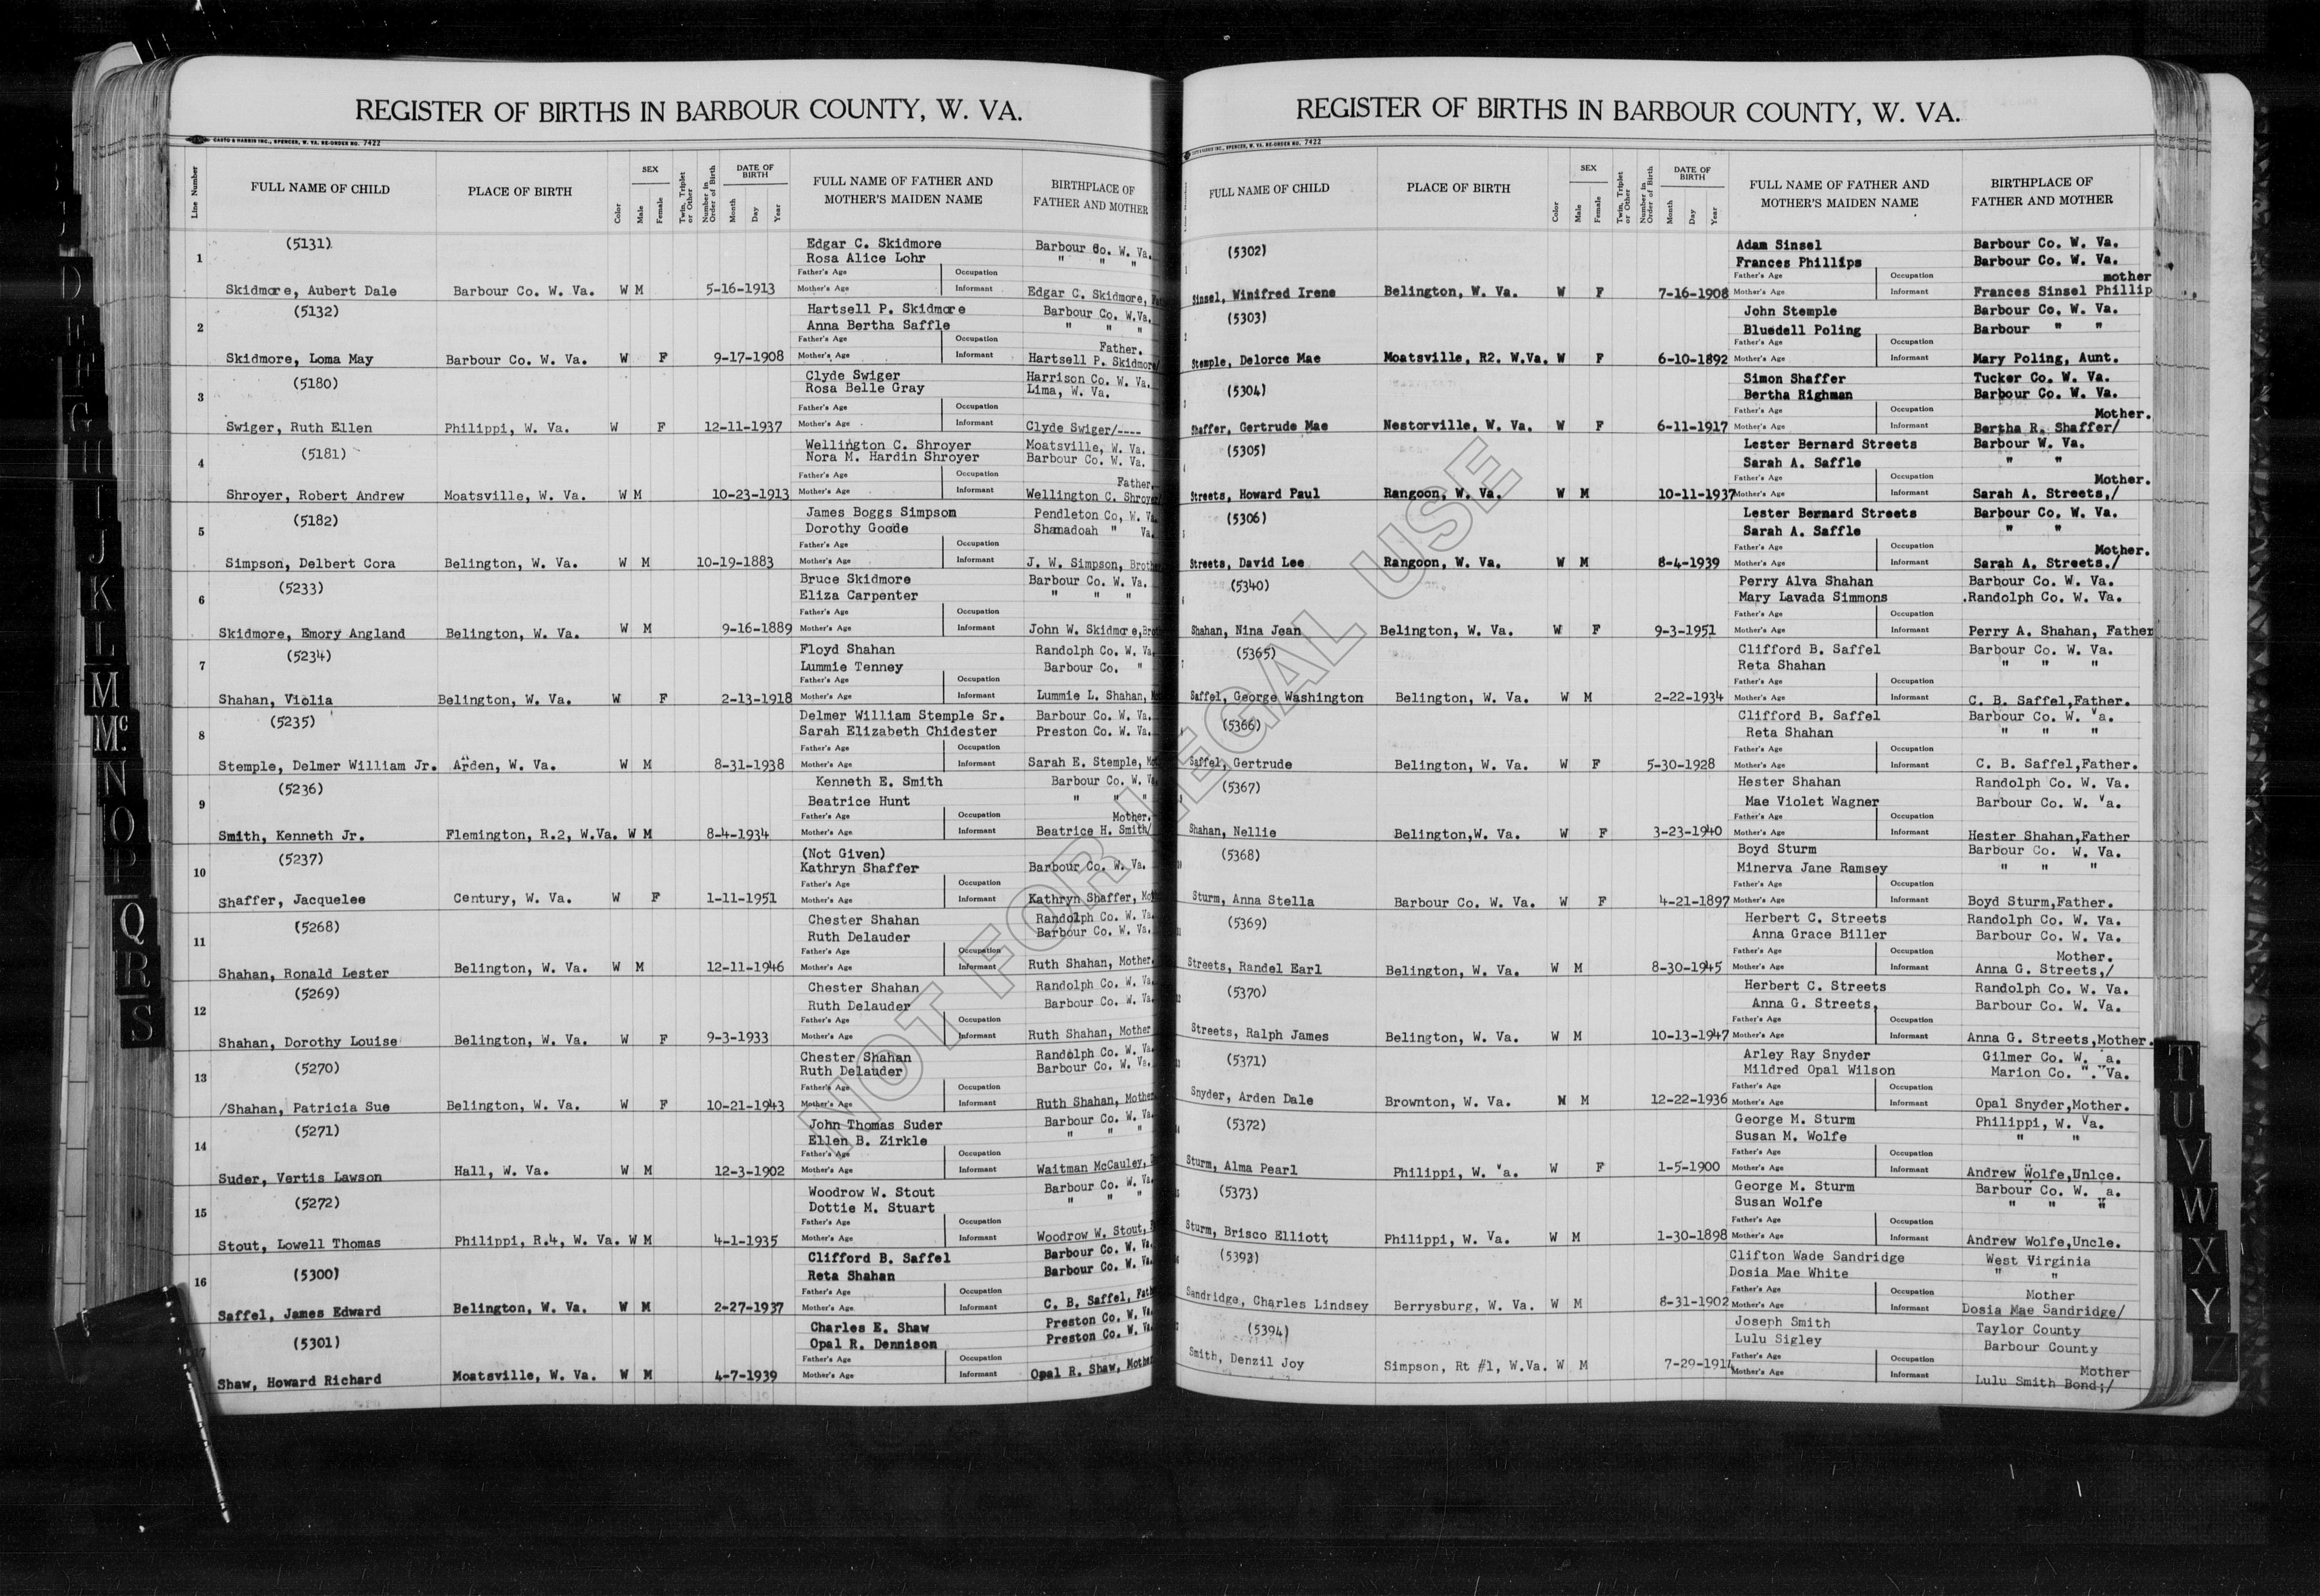 REGISTER OF BIRTHS IN BARBOUR COUNTY, W. VA.
CASTO & HARRIS INC., SPENCER, W. VA. RE-ORDER NO. 7422
Line Number FULL NAME OF CHILD PLACE OF BIRTH Color SEX Male Female Twin, Triplet or Other Number in Order of Birth DATE OF BIRTH Month Day Year FULL NAME OF FATHER AND MOTHER'S MAIDEN NAME BIRTHPLACE OF FATHER AND MOTHER
(5131) Edgar C. Skidmore Barbour Co. W. Va.
1 Rosa Alice Lohr " " "
Father's Age Occupation
Skidmore, Aubert Dale Barbour Co. W. Va. W M 5-16-1913 Mother's Age Informant Edgar C. Skidmore,
(5132) Hartsell P. Skidmore Barbour Co. W.Va.
2 Anna Bertha Saffle " " "
Father's Age Occupation Father.
Skidmore, Loma May Barbour Co. W. Va. W F 9-17-1908 Mother's Age Informant Hartsell P. Skidmore/
(5180) Clyde Swiger Harrison Co. W. Va.
3 Rosa Belle Gray Lima, W. Va.
Father's Age Occupation
Swiger, Ruth Ellen Philippi, W. Va. W F 12-11-1937 Mother's Age Informant Clyde Swiger/----
(5181) Wellington C. Shroyer Moatsville, W. Va.
4 Nora M. Hardin Shroyer Barbour Co. W. Va.
Father's Age Occupation Father.
Shroyer, Robert Andrew Moatsville, W. Va. W M 10-23-1913 Mother's Age Informant Wellington C. Shroyer/
(5182) James Boggs Simpson Pendleton Co, W. Va.
5 Dorothy Goode Shanadoah " Va.
Father's Age Occupation
Simpson, Delbert Cora Belington, W. Va. W M 10-19-1883 Mother's Age Informant J. W. Simpson, Brother
(5233) Bruce Skidmore Barbour Co. W. Va.
6 Eliza Carpenter " " "
Father's Age Occupation
Skidmore, Emory Angland Belington, W. Va. W M 9-16-1889 Mother's Age Informant John W. Skidmore,
(5234) Floyd Shahan Randolph Co. W. Va.
7 Lummie Tenney Barbour Co. "
Father's Age Occupation
Shahan, Violia Belington, W. Va. W F 2-13-1918 Mother's Age Informant Lummie L. Shahan,
(5235) Delmer William Stemple Sr. Barbour Co. W. Va.
8 Sarah Elizabeth Chidester Preston Co. W. Va.
Father's Age Occupation
Stemple, Delmer William Jr. Arden, W. Va. W M 8-31-1938 Mother's Age Informant Sarah E. Stemple,
(5236) Kenneth E. Smith Barbour Co. W. Va.
9 Beatrice Hunt " " "
Father's Age Occupation Mother.
Smith, Kenneth Jr. Flemington, R.2, W.Va. W M 8-4-1934 Mother's Age Informant Beatrice H. Smith/
(5237) (Not Given)
10 Kathryn Shaffer Barbour Co. W. Va.
Father's Age Occupation
Shaffer, Jacquelee Century, W. Va. W F 1-11-1951 Mother's Age Informant Kathryn Shaffer,
(5268) Chester Shahan Randolph Co. W. Va.
11 Ruth Delauder Barbour Co. W. Va.
Father's Age Occupation
Shahan, Ronald Lester Belington, W. Va. W M 12-11-1946 Mother's Age Informant Ruth Shahan, Mother.
(5269) Chester Shahan Randolph Co. W. Va.
12 Ruth Delauder Barbour Co. W. Va.
Father's Age Occupation
Shahan, Dorothy Louise Belington, W. Va. W F 9-3-1933 Mother's Age Informant Ruth Shahan, Mother
(5270) Chester Shahan Randolph Co. W. Va.
13 Ruth Delauder Barbour Co. W. Va.
Father's Age Occupation
/Shahan, Patricia Sue Belington, W. Va. W F 10-21-1943 Mother's Age Informant Ruth Shahan, Mother
(5271) John Thomas Suder Barbour Co. W. Va.
14 Ellen B. Zirkle " " "
Father's Age Occupation
Suder, Vertis Lawson Hall, W. Va. W M 12-3-1902 Mother's Age Informant Waitman McCauley,
(5272) Woodrow W. Stout Barbour Co. W. Va.
15 Dottie M. Stuart " " "
Father's Age Occupation
Stout, Lowell Thomas Philippi, R.4, W. Va. W M 4-1-1935 Mother's Age Informant Woodrow W. Stout,
(5300) Clifford B. Saffel Barbour Co. W. Va.
16 Reta Shahan Barbour Co. W. Va.
Father's Age Occupation
Saffel, James Edward Belington, W. Va. W M 2-27-1937 Mother's Age Informant C. B. Saffel,
(5301) Charles E. Shaw Preston Co. W. Va.
17 Opal R. Dennison Preston Co. W. Va.
Father's Age Occupation
Shaw, Howard Richard Moatsville, W. Va. W M 4-7-1939 Mother's Age Informant Opal R. Shaw, Mother
D
F
G
H
I
J
K
L
M
Mc.
N
O
P
Q
R
S
REGISTER OF BIRTHS IN BARBOUR COUNTY, W. VA.
CASTO & HARRIS INC., SPENCER, W. VA. RE-ORDER NO. 7422
FULL NAME OF CHILD PLACE OF BIRTH Color SEX Male Female Twin, Triplet or Other Number in Order of Birth DATE OF BIRTH Month Day Year FULL NAME OF FATHER AND MOTHER'S MAIDEN NAME BIRTHPLACE OF FATHER AND MOTHER
(5302) Adam Sinsel Barbour Co. W. Va.
Frances Phillips Barbour Co. W. Va.
Father's Age Occupation mother
Sinsel, Winifred Irene Belington, W. Va. W F 7-16-1908 Mother's Age Informant Frances Sinsel Phillip
(5303) John Stemple Barbour Co. W. Va.
Bluedell Poling Barbour " "
Father's Age Occupation
Stemple, Delorce Mae Moatsville, R2. W.Va. W F 6-10-1892 Mother's Age Informant Mary Poling, Aunt.
(5304) Simon Shaffer Tucker Co. W. Va.
Bertha Righman Barbour Co. W. Va.
Father's Age Occupation Mother.
Shaffer, Gertrude Mae Nestorville, W. Va. W F 6-11-1917 Mother's Age Informant Bertha R. Shaffer/
(5305) Lester Bernard Streets Barbour W. Va.
Sarah A. Saffle " "
Father's Age Occupation Mother.
Streets, Howard Paul Rangoon, W. Va. W M 10-11-1937 Mother's Age Informant Sarah A. Streets,/
(5306) Lester Bernard Streets Barbour Co. W. Va.
Sarah A. Saffle " "
Father's Age Occupation Mother.
Streets, David Lee Rangoon, W. Va. W M 8-4-1939 Mother's Age Informant Sarah A. Streets./
(5340) Perry Alva Shahan Barbour Co. W. Va.
Mary Lavada Simmons .Randolph Co. W. Va.
Father's Age Occupation
Shahan, Nina Jean Belington, W. Va. W F 9-3-1951 Mother's Age Informant Perry A. Shahan, Father
(5365) Clifford B. Saffel Barbour Co. W. Va.
Reta Shahan " " "
Father's Age Occupation
Saffel, George Washington Belington, W. Va. W M 2-22-1934 Mother's Age Informant C. B. Saffel,Father.
(5366) Clifford B. Saffel Barbour Co. W. Va.
Reta Shahan " " "
Father's Age Occupation
Saffel, Gertrude Belington, W. Va. W F 5-30-1928 Mother's Age Informant C. B. Saffel,Father.
(5367) Hester Shahan Randolph Co. W. Va.
Mae Violet Wagner Barbour Co. W. Va.
Father's Age Occupation
Shahan, Nellie Belington,W. Va. W F 3-23-1940 Mother's Age Informant Hester Shahan,Father
(5368) Boyd Sturm Barbour Co. W. Va.
10 Minerva Jane Ramsey " " "
Father's Age Occupation
Sturm, Anna Stella Barbour Co. W. Va. W F 4-21-1897 Mother's Age Informant Boyd Sturm,Father.
(5369) Herbert C. Streets Randolph Co. W. Va.
11 Anna Grace Biller Barbour Co. W. Va.
Father's Age Occupation Mother.
Streets, Randel Earl Belington, W. Va. W M 8-30-1945 Mother's Age Informant Anna G. Streets,/
(5370) Herbert C. Streets Randolph Co. W. Va.
12 Anna G. Streets, Barbour Co. W. Va.
Father's Age Occupation
Streets, Ralph James Belington, W. Va. W M 10-13-1947 Mother's Age Informant Anna G. Streets,Mother.
(5371) Arley Ray Snyder Gilmer Co. W. a.
13 Mildred Opal Wilson Marion Co. W. Va.
Father's Age Occupation
Snyder, Arden Dale Brownton, W. Va. W M 12-22-1936 Mother's Age Informant Opal Snyder,Mother.
(5372) George M. Sturm Philippi, W. Va.
Susan M. Wolfe " "
Father's Age Occupation
Sturm, Alma Pearl Philippi, W. Va. W F 1-5-1900 Mother's Age Informant Andrew Wolfe,Unlce.
(5373) George M. Sturm Barbour Co. W. a.
Susan Wolfe " " "
Father's Age Occupation
Sturm, Brisco Elliott Philippi, W. Va. W M 1-30-1898 Mother's Age Informant Andrew Wolfe,Uncle.
(5393) Clifton Wade Sandridge West Virginia
Dosia Mae White " "
Father's Age Occupation Mother
Sandridge, Charles Lindsey Berrysburg, W. Va. W M 8-31-1902 Mother's Age Informant Dosia Mae Sandridge/
(5394) Joseph Smith Taylor County
Lulu Sigley Barbour County
Father's Age Occupation Mother
Smith, Denzil Joy Simpson, Rt #1, W.Va. W M 7-29-1914 Mother's Age Informant Lulu Smith Bond;/
T
U
V
W
X
Y
Z
NOT FOR LEGAL USE